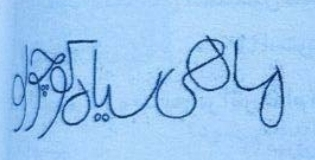 ماهی سیاه کوچولو